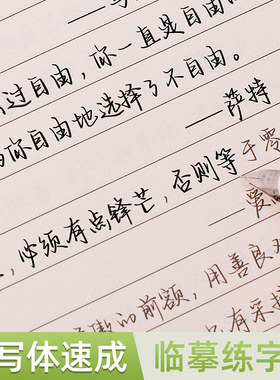 过自由，你一直是自由
你自由地选择了不自由。
——萨特
于零
，必须有点锋芒，否则等
的前额，用善良
有采
写体速成
临摹练字